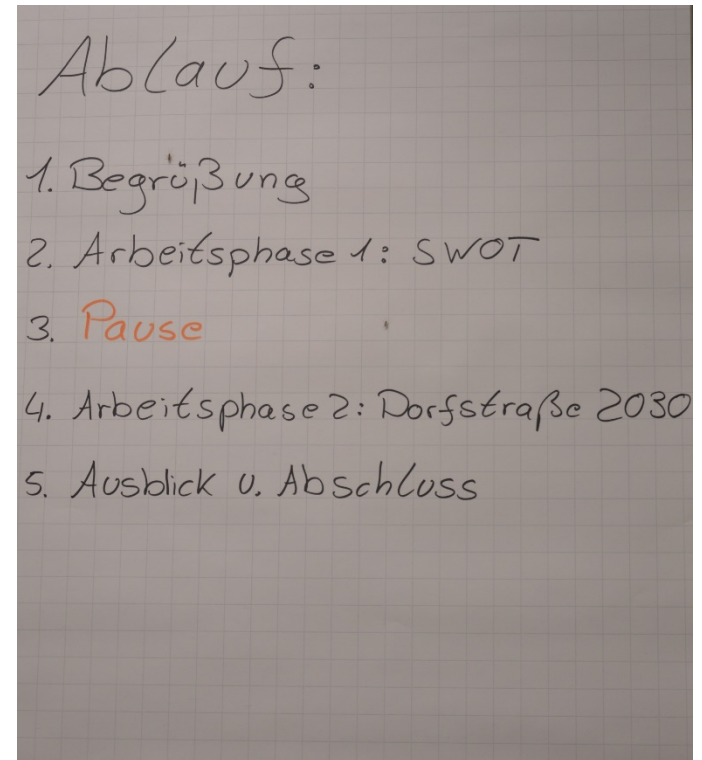 Ablauf:
1. Begrüßung
2. Arbeitsphase 1: SWOT
3. Pause
4. Arbeitsphase 2: Dorfstraße 2030
5. Ausblick u. Abschluss